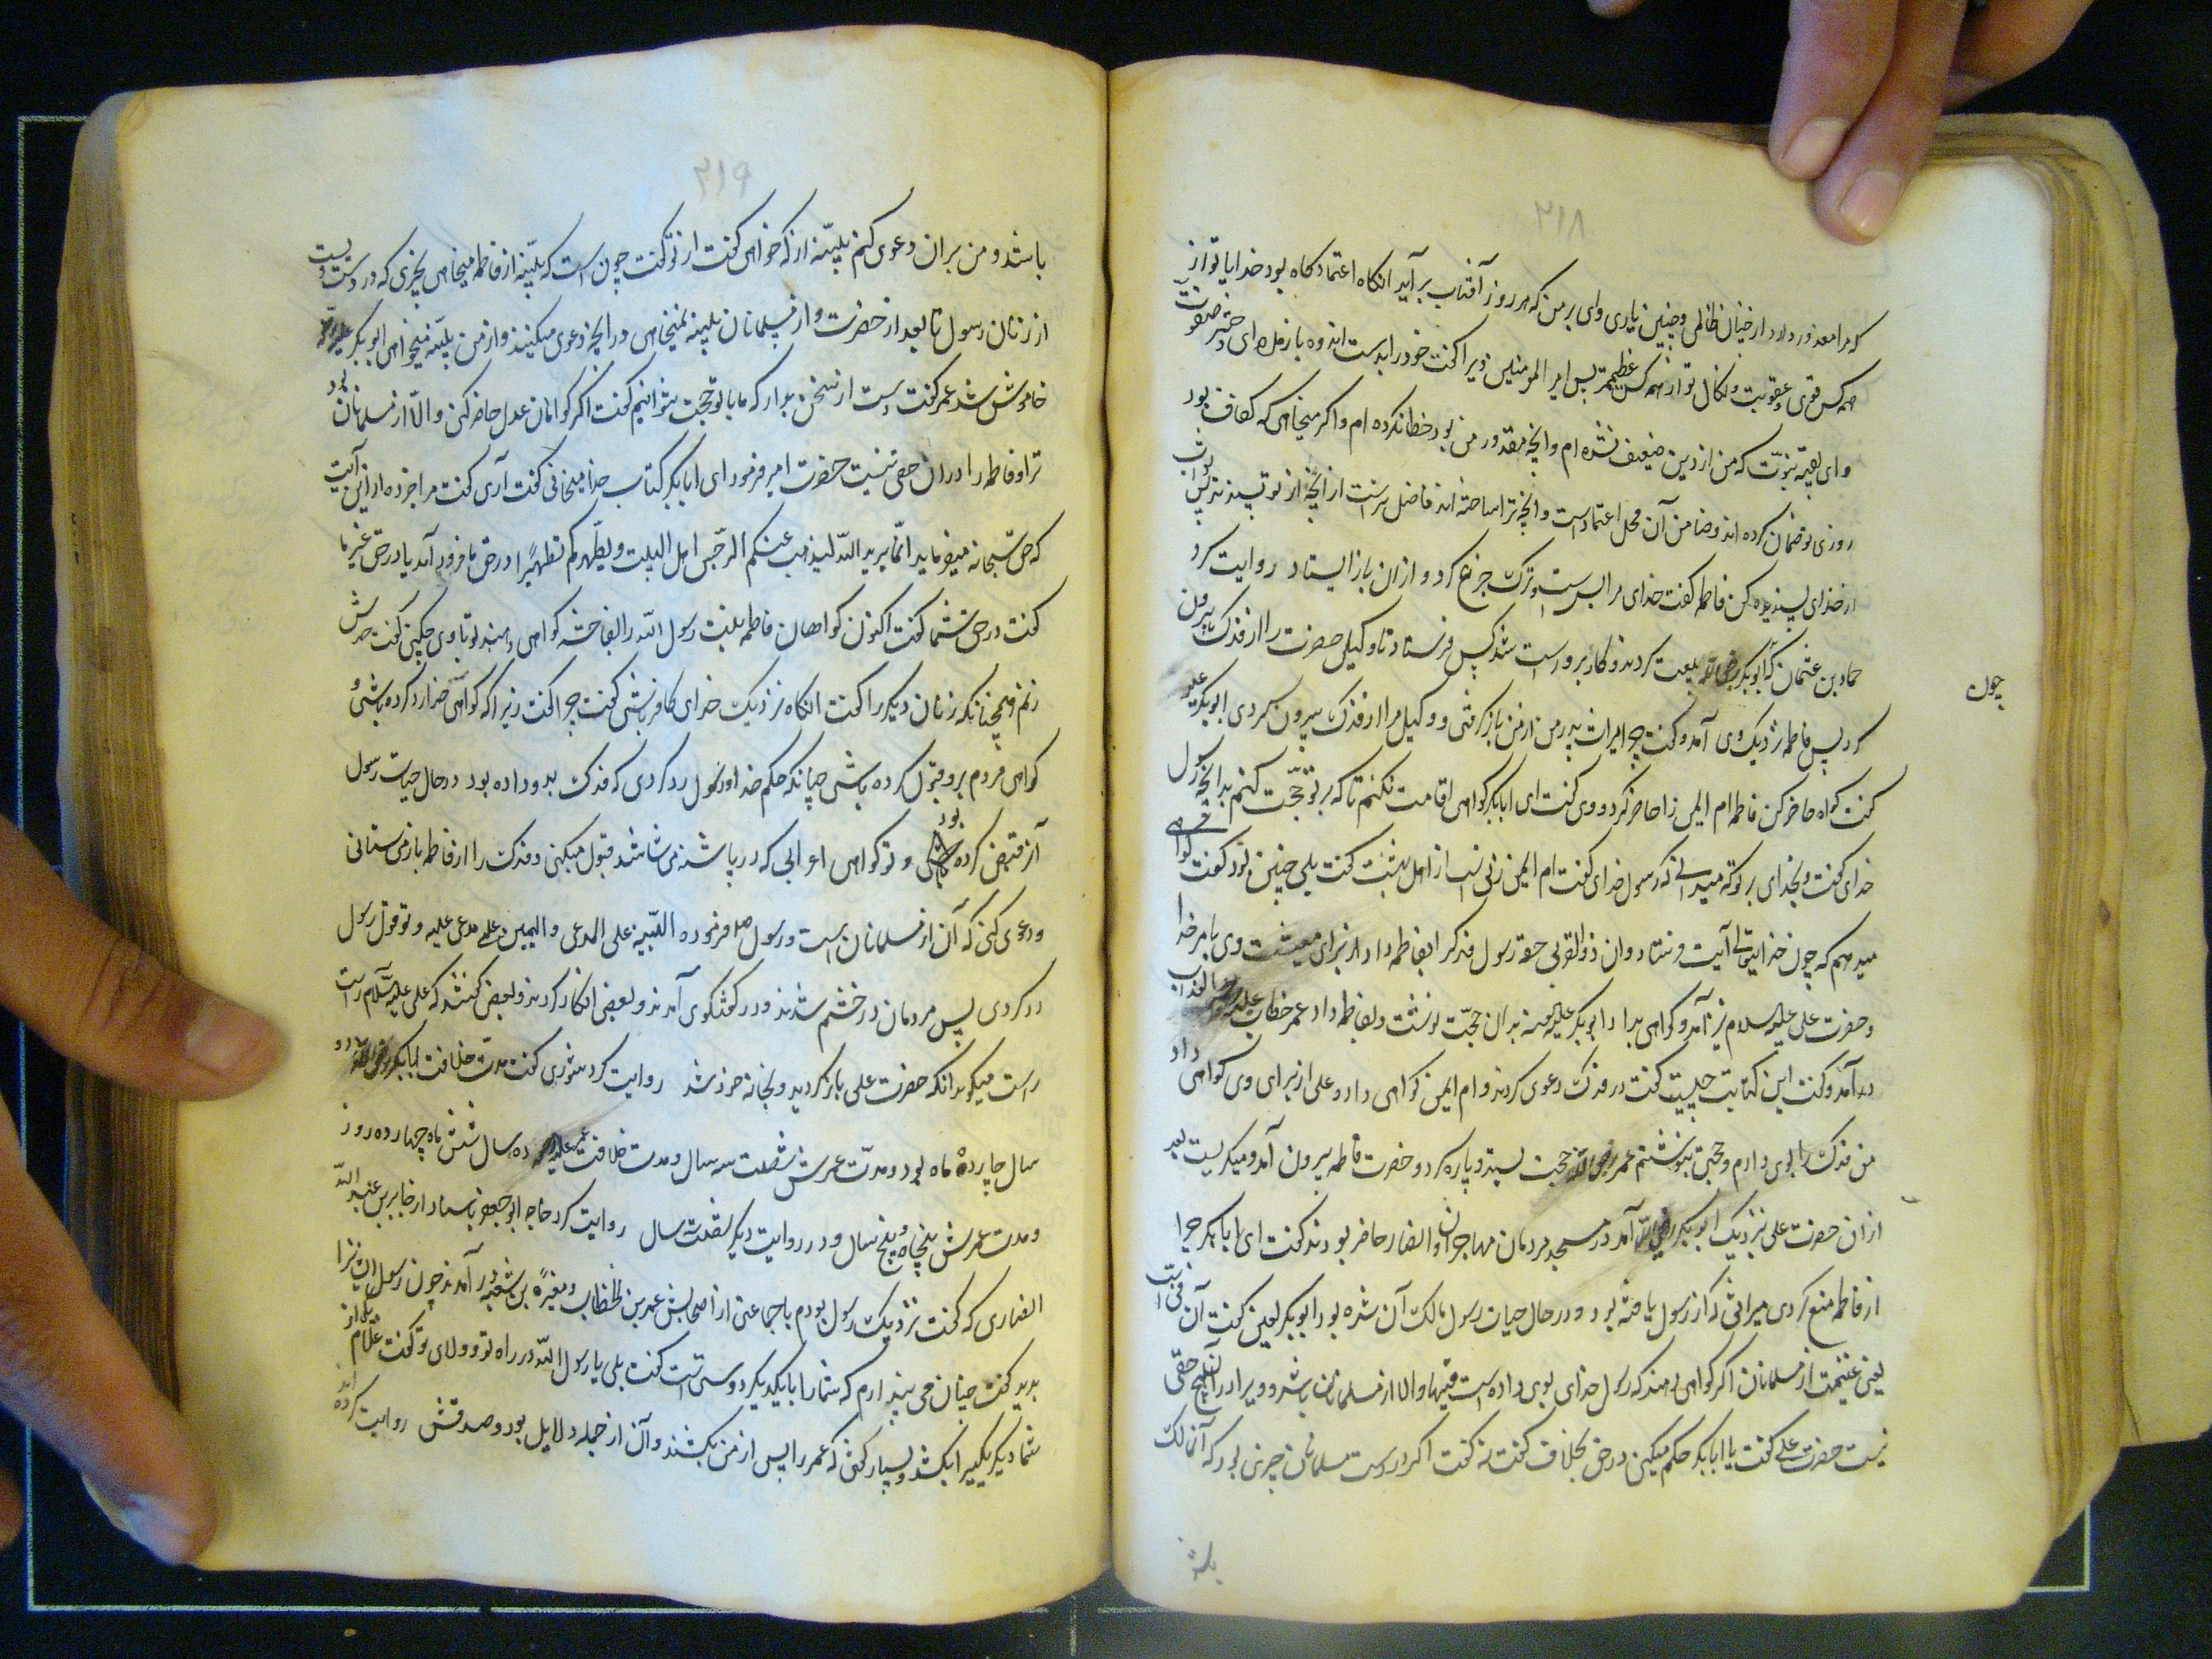 ۲۱۸
که مرا معذور دارد از چنان ظالمی و چنین یاری وای بر من که هر روز آفتاب برآید انگاه اعتمادگاه بود خدایا تو از
همه کس قوی و عقوبت و نکال تو از همه کس عظیمتر پس امیر المومنین ویرا گفت خود را بدست اندوه باز مده ای دختر صفوت
و ای بقیه نبوّت که من از دین ضعیف نشده ام و انچه مقدور من بود خطا نکرده ام و اگر میخواهی که کفاف بود
روزی تو ضمان کرده اند و ضامن آن محل اعتمادست و انچه ترا ساخته اند فاضل ترست از انچه از تو بستدند پس ثواب
از خدای پسندیده کن فاطمه گفت خدای مرا بس است و ترک جزع کرد و ازان باز ایستاد روایت کرد
حماد بن عثمان که چون ابوبکر رضی الله بیعت کردند و کار برو راست شد کس فرستاد تا وکیل حضرت را از فدک بیرون
کرد پس فاطمه نزدیک وی آمد و گفت چرا میراث پدر من از من باز گرفتی و وکیل مرا از فدک بیرون کردی ابوبکر علیه
گفت گواه حاضر کن فاطمه ام ایمن را حاضر کرد و وی گفت ای ابابکر گواهی اقامت نکنم تا که بر تو حجّت کنم بدانچه رسول
خدای گفت و بخدای بر تو که میدانی که رسول خدای گفت ام ایمن زنی است از اهل بهشت گفت بلی چنین بود گفت گواهی
میدهم که چون خدایتعالی آیت فرستاد وات ذوالقربی حقه رسول فدک را بفاطمه داد از برای معیشت وی بامر خدا
و حضرت علی علیه السلام نیز آمد و گواهی بداد ابوبکر علیه بدان حجّت نوشت و بفاطمه داد عمر خطاب علیه
درآمد و گفت این کتابت چیست گفت در فدک دعوی کردند و ام ایمن گواهی داد و علی از برای وی گواهی داد
من فدک را بوی دادم و حجتی بنوشتم عمر رضی الله حجت بستد و پاره کرد و حضرت فاطمه بیرون آمد و میگریست بعد
ازان حضرت علی بنزدیک ابوبکر رضی الله آمد در مسجد مردمان مهاجران و انصار حاضر بودند گفت ای ابابکر چرا
از فاطمه منع کردی میراثی که از رسول یافته بود و در حال حیات رسول مالک آن شده بود ابوبکر لعین گفت آن فی است
یعنی غنیمت از مسلمانان اگر گواهی دهند که رسول خدای بوی داده است فبها و الا از مسلمانان باشد و ویرا در آن هیچ حقی
نیست حضرت علی گفت یا ابابکر حکم میکنی در حق بخلاف گفت نه گفت اگر در دست مسلمانان چیزی بود که آن مالک
باشد
۲۱۹
باشد و من بران دعوی کنم بیّنه از که خواهی گفت از تو گفت چون است که بیّنه از فاطمه میخواهی بچیزی که در دست اوست
از زنان رسول تا بعد از حضرت و از مسلمانان بینه نمیخواهی در انچه دعوی میکنند و از من بیّنه میخواهی ابوبکر علیه
خاموش شد عمر گفت دست از سخن بدار که ما با تو حجت نتوانیم گفت اگر گواهان عدل حاضر کن والّا از مسلمانان بود
ترا و فاطمه را دران حقی نیست حضرت امیر فرمود ای ابابکر کتاب خدا میخوانی گفت آری گفت مرا خبر ده از این آیت
که حق سبحانه میفرماید انّما یرید الله لیذهب عنکم الرجس اهل البیت و یطهّرکم تطهیرًا در حق ما فرود آمد یا در حق غیر ما
گفت در حق شما گفت اکنون گواهان فاطمه بنت رسول الله را بفاحشه گواهی دهند تو با وی چکنی گفت حدش
زنم همچنانکه زنان دیگر را گفت انگاه نزدیک خدای کافر باشی گفت چرا گفت زیرا که گواهی خدا رد کرده باشی و
گواهی مردم برو قبول کرده باشی چنانکه حکم خدا و رسول رد کردی که فدک بدو داده بود در حال حیات رسول
آنرا قبض کرده بود و تو گواهی اعرابی که در پاشنه می شاشد قبول میکنی و فدک را از فاطمه باز می ستانی
و دعوی کنی که آن از مسلمانان است و رسول ص فرموده البیّنه علی المدعی و الیمین علی مدعی علیه و تو قول رسول
رد کردی پس مردمان در خشم شدند و در گفتگوی آمدند و بعضی انکار کردند و بعضی گفتند که علی علیه السّلام راست
راست میگوید انگه حضرت علی باز گردید و بخانه خود شد روایت کرد ثوری گفت مدّت خلافت ابابکر رضی الله دو
سال چارده ماه بود و مدّت عمرش شصت سه سال و مدت خلافت عمر علیه ده سال شش ماه چهارده روز
و مدت عمرش پنجاه و پنج سال و در روایت دیگر شصت سال روایت کرد خاجه ابوجعفر باسناد از جابر بن عبد الله
انصاری که گفت نزدیک رسول بودم با جماعتی از اصحابش عمر بن الخطاب و مغیرة بن شعبه در آمدند چون رسول ایشانرا
بدید گفت چنان می پندارم که شما را با یکدیگر دوستی است گفت بلی یا رسول الله در راه تو و ولای تو گفت غلام یکی از
شما دیگر یکیرا بکشد و بسیار کس که عمر را پس از من بکشند و آن از جمله دلایل بود و صدقش روایت کرده اند